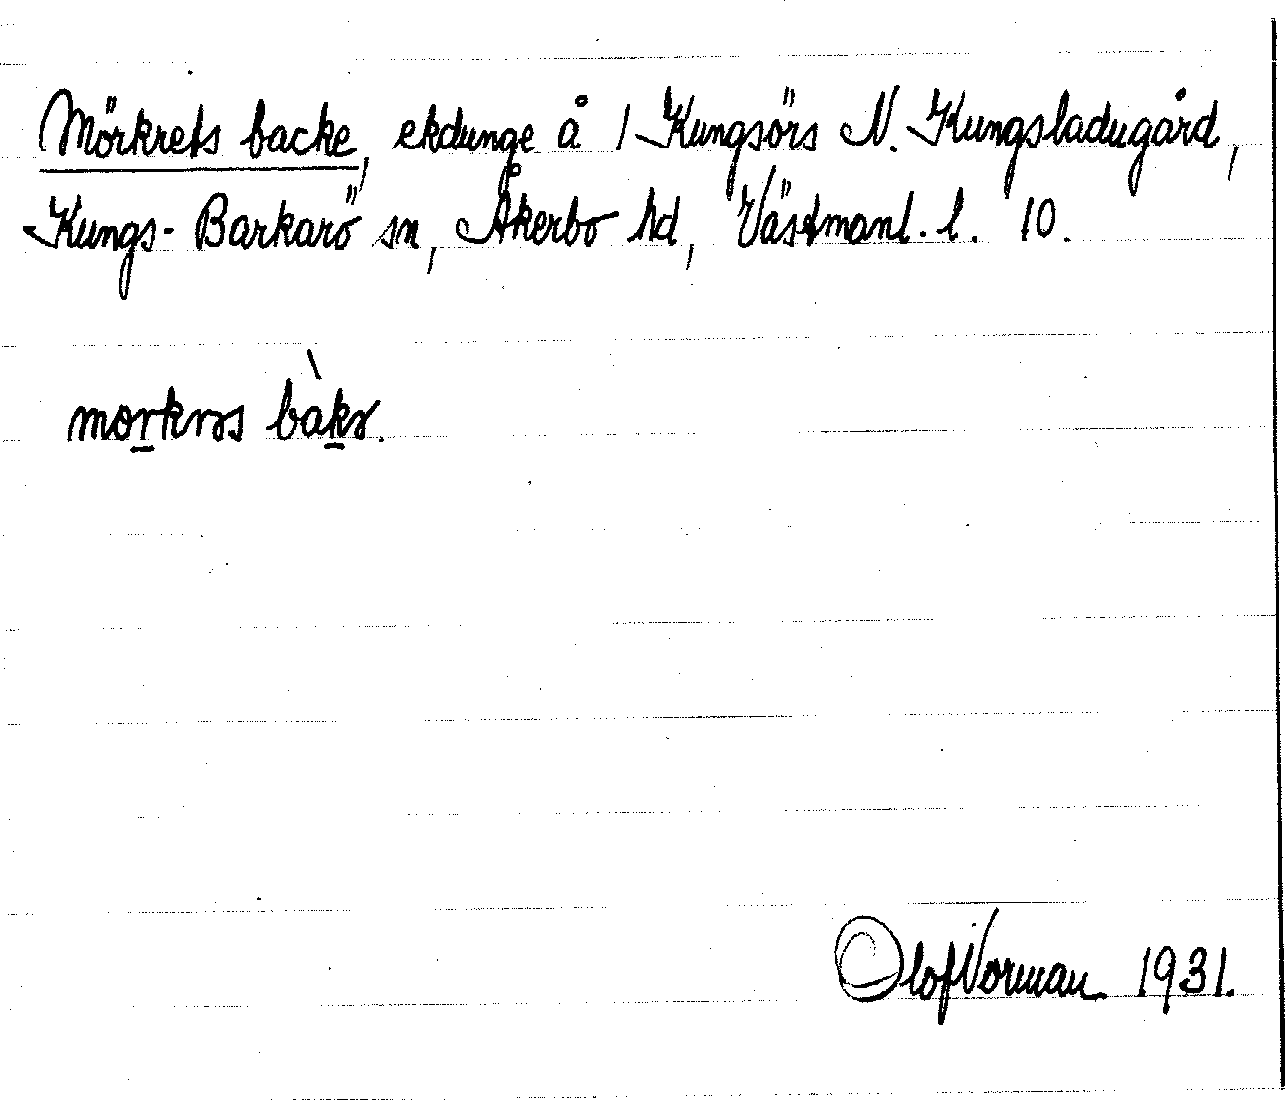 Mörkrets backe, ekdunge å 1 Kungsörs N. Kungsladugård,
Kungs-Barkarö sn, Åkerbo hd, Västmanl. l. 10.
Olof Norman 1931.